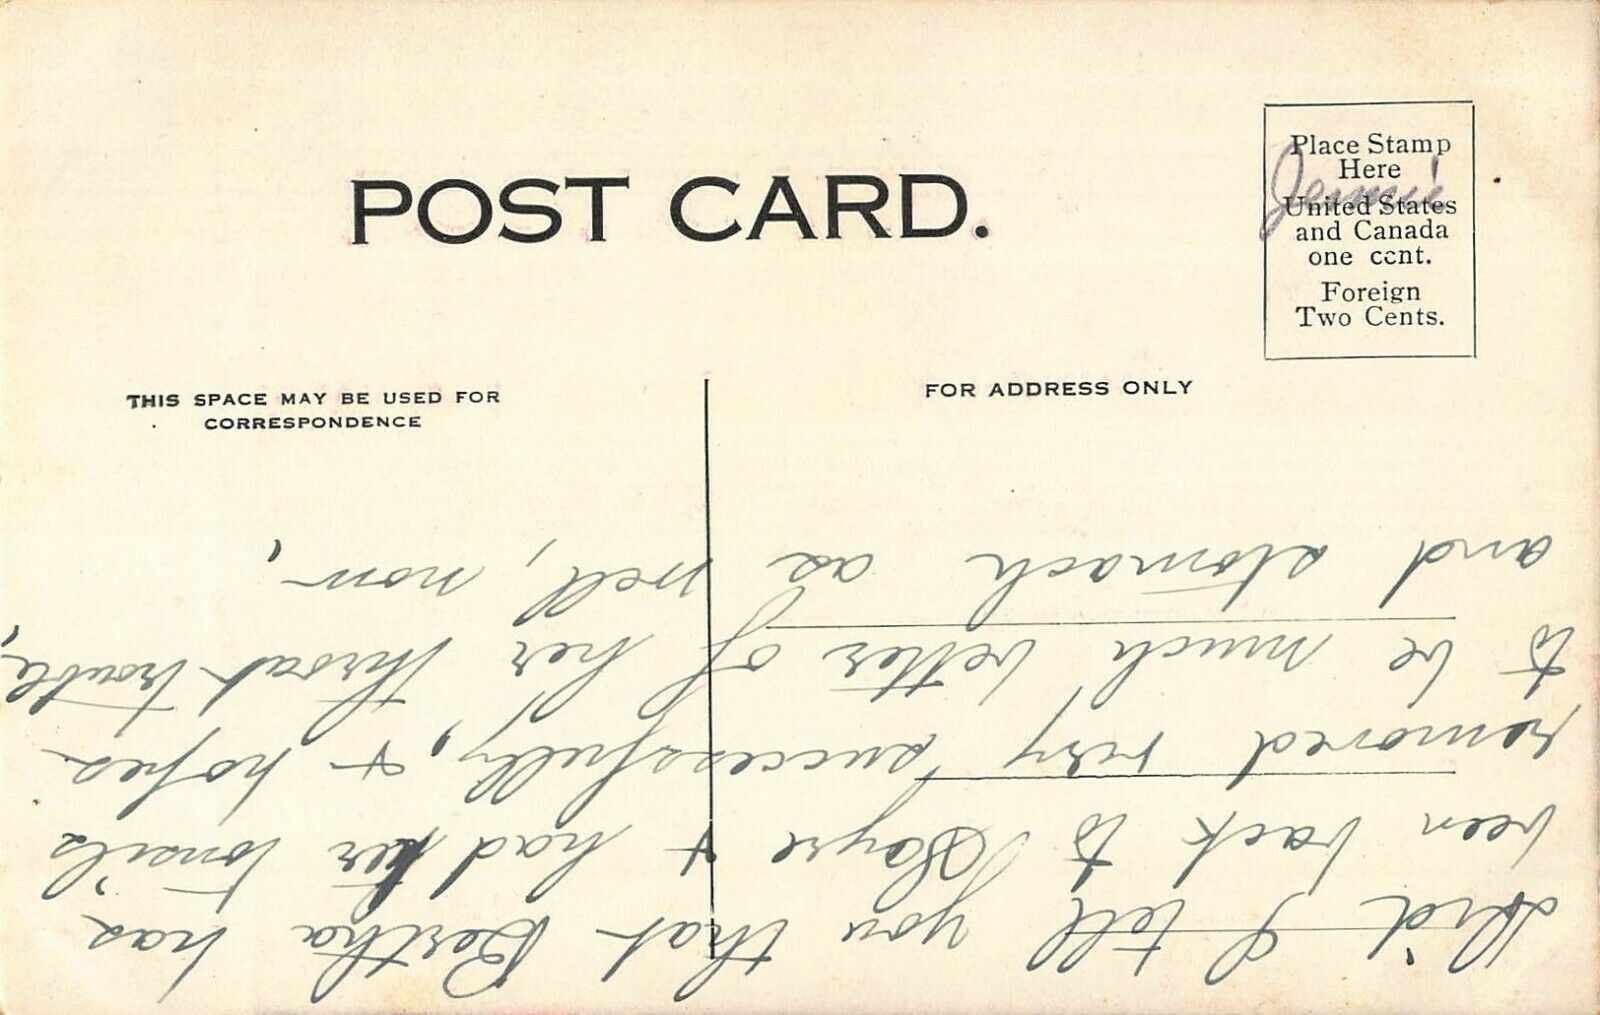 POST CARD.
Place Stamp
Here
United States
and Canada
one cent.
Foreign
Two Cents.
Jennie
THIS SPACE MAY BE USED FOR
CORRESPONDENCE
FOR ADDRESS ONLY
Did I tell you that Bertha has
been back to Sayre + had her tonsils
removed very successfully, + hopes
to be much better of her throat trouble,
and stomach as well, now,